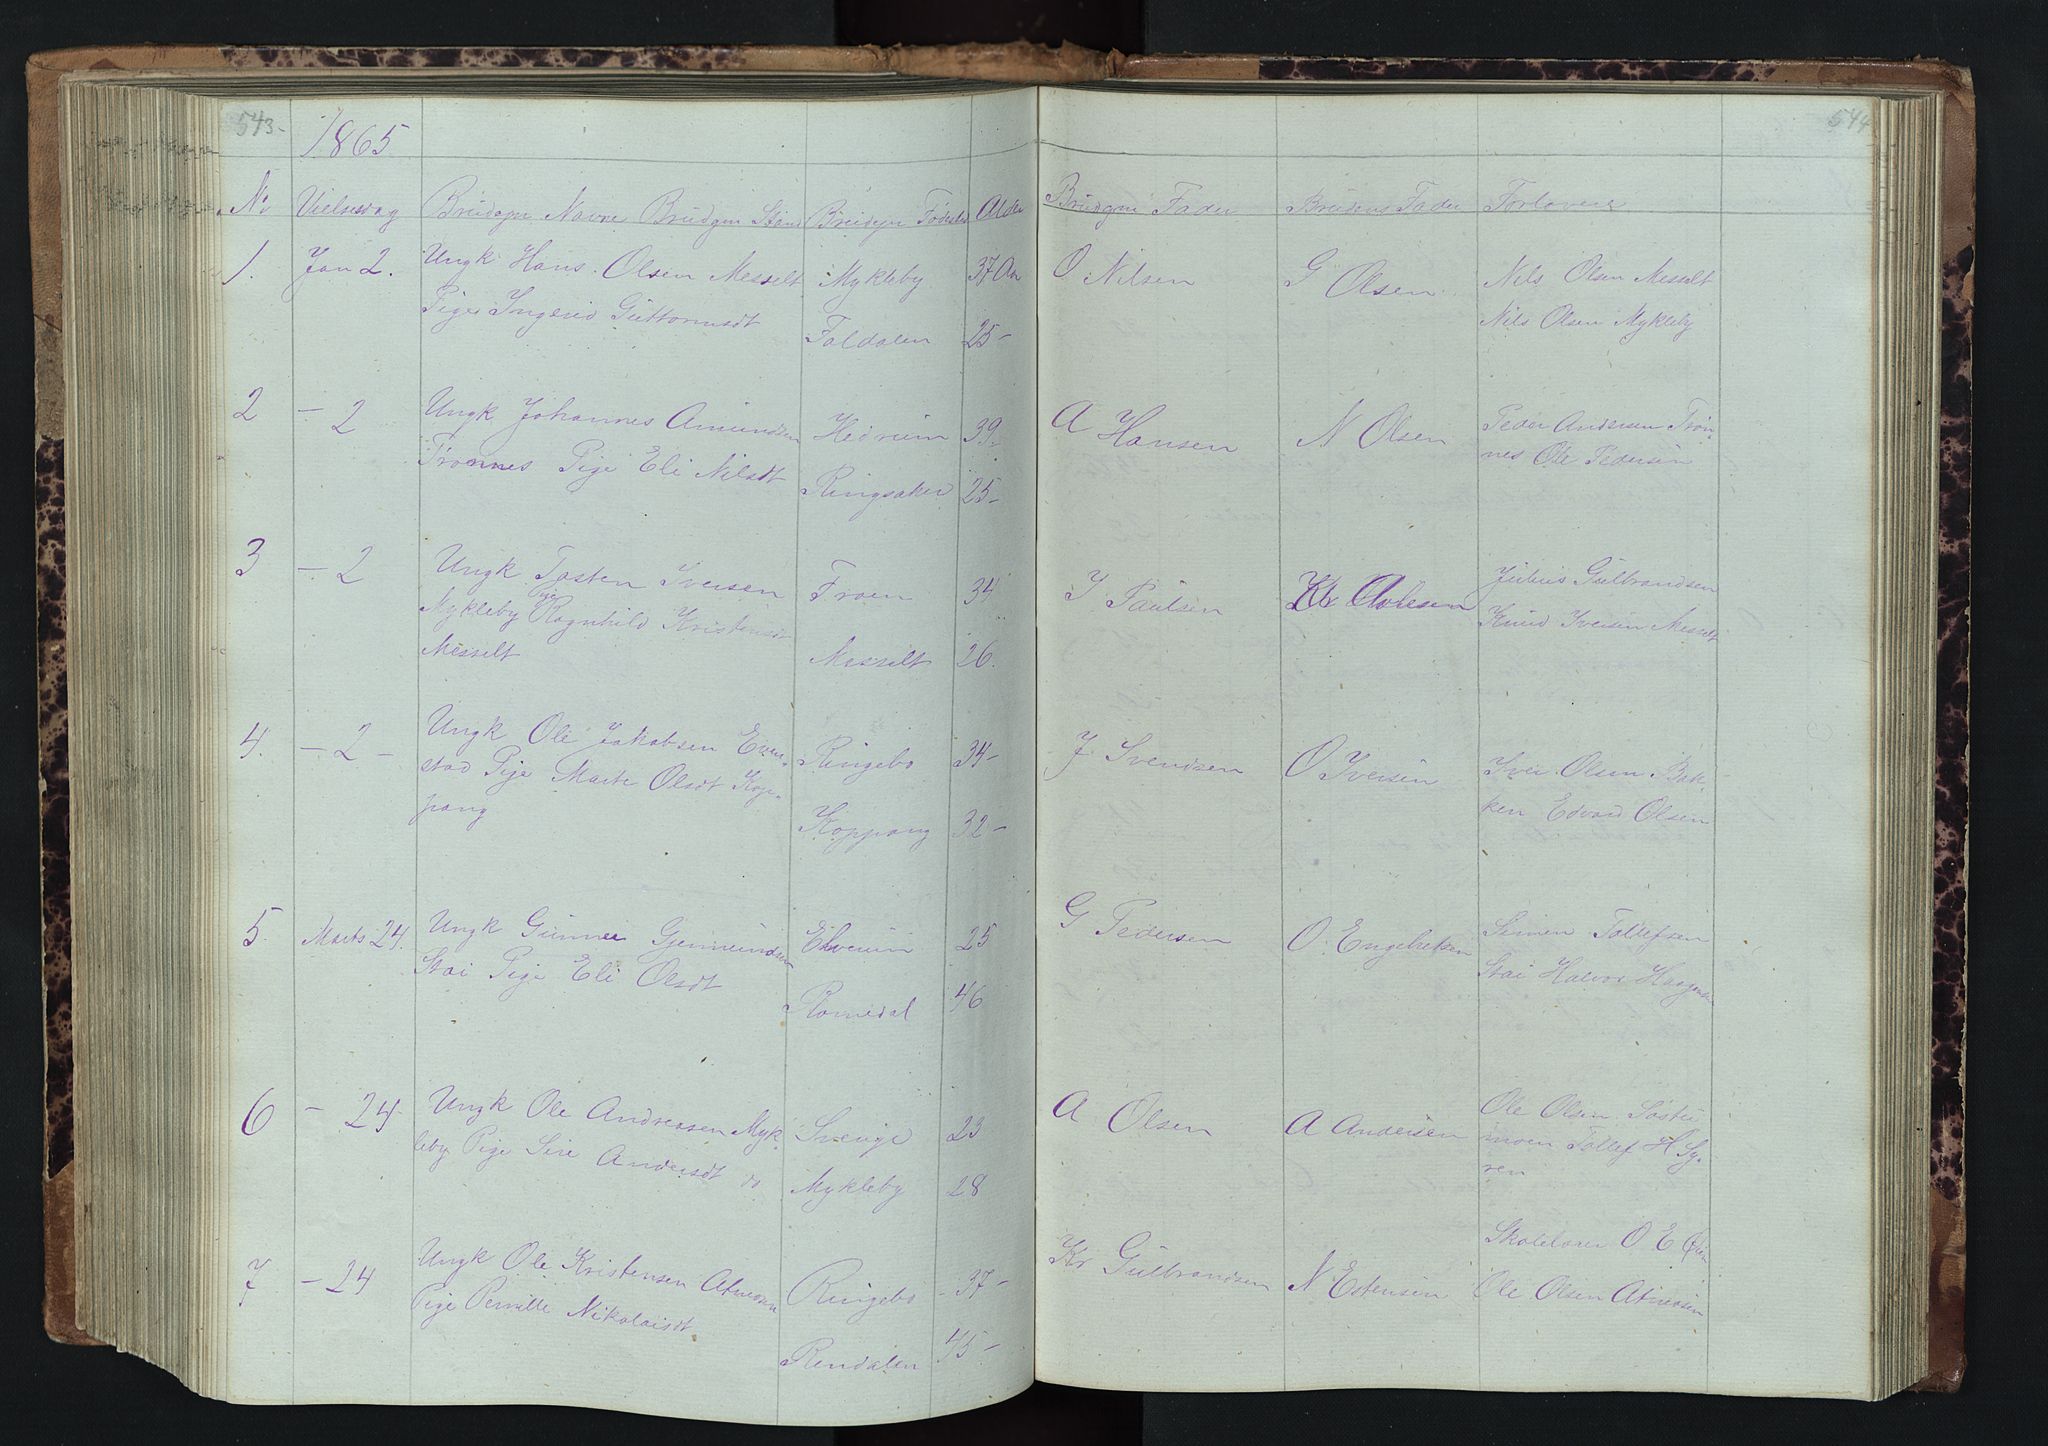 543-
544
1865
No Vielsesdag Brudgm Navne Brudgm Stand Brudgm Fødested Alder Brudgm Fader Brudens Fader Forlovere
1. Jan 2. Ungk Hans Olsen Messelt Mykleby 37 Aar O Nilsen G Olsen Nils Olsen Messelt
Pige Ingerid Guttormsdt Foldalen 25- Nils Olsen Mykleby
2 - 2 Ungk Johannes Amundsen Hedrum 39. A Hansen N Olsen Peder Andersen Trøn-
Trønnes Pige Eli Nilsdt Ringsaker 25- nes Ole Pedersen
3 - 2 Ungk Tosten Iversen Froen 34 I Paulsen Kr Julius Gulbrandsen
Mykleby Pige Ragnhild Kristensdt Knud Iversen Messelt
Messelt Messelt 26.
4. - 2 - Ungk Ole Jakobsen Even- Ringebo 34- J Svendsen O Iversen Iver Olsen Bak-
stad Pige Marte Olsdt Kop- ken Edvard Olsen
pang Koppang 32-
5. Marts 24. Ungk Gunner Gjermundsen Elverum 25 G Pedersen O. Engebretsen Simen Tollefsen
Stai Pige Eli Olsdt Romedal 46 Stai Halvor Haagensen
6 - 24- Ungk Ole Andreasen Myk- Sverige 23 A Olsen A Andersen Ole Olsen
leby Pige Sire Andersdt do Mykleby 28 moen Tollef H Sy-
ren
7 - 24 Ungk Ole Kristensen Atneosen Ringebo - 37- Kr Gulbrandsen N Estensen Skolelærer O E
Pige Pernille Nikolaisdt Rendalen 45- Ole Olsen Atneosen